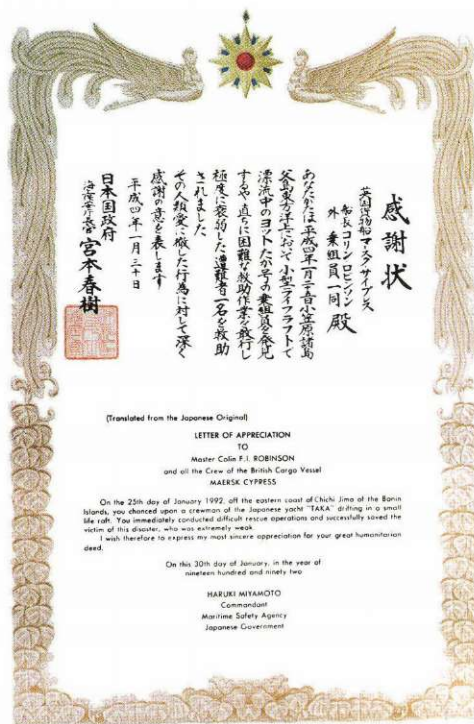 感謝状
英国貨物船マースク・サイプレス
船長コリン・ロビンソン
外 乗組員一同 殿
あなたがたは平成四年一月二十五日小笠原諸島
父島東方洋上において小型ライフラフトで
漂流中のヨットたか号の乗組員を発見
するや直ちに困難な救助作業を敢行し
極度に衰弱した遭難者一名を救助
されました
その人類愛に徹した行為に対して深く
感謝の意を表します
平成四年一月三十日
日本国政府
海上保安庁長官 宮本春樹
(Translated from the Japanese Original)
LETTER OF APPRECIATION
TO
Master Colin F.I. ROBINSON
and all the Crew of the British Cargo Vessel
MAERSK CYPRESS
On the 25th day of January 1992, off the eastern coast of Chichi Jima of the Bonin
Islands, you chanced upon a crewman of the Japanese yacht "TAKA" drifting in a small
life raft. You immediately conducted difficult rescue operations and successfully saved the
victim of this disaster, who was extremely weak.
I wish therefore to express my most sincere appreciation for your great humanitarian
deed.
On this 30th day of January, in the year of
nineteen hundred and ninety two
HARUKI MIYAMOTO
Commandant
Maritime Safety Agency
Japanese Government